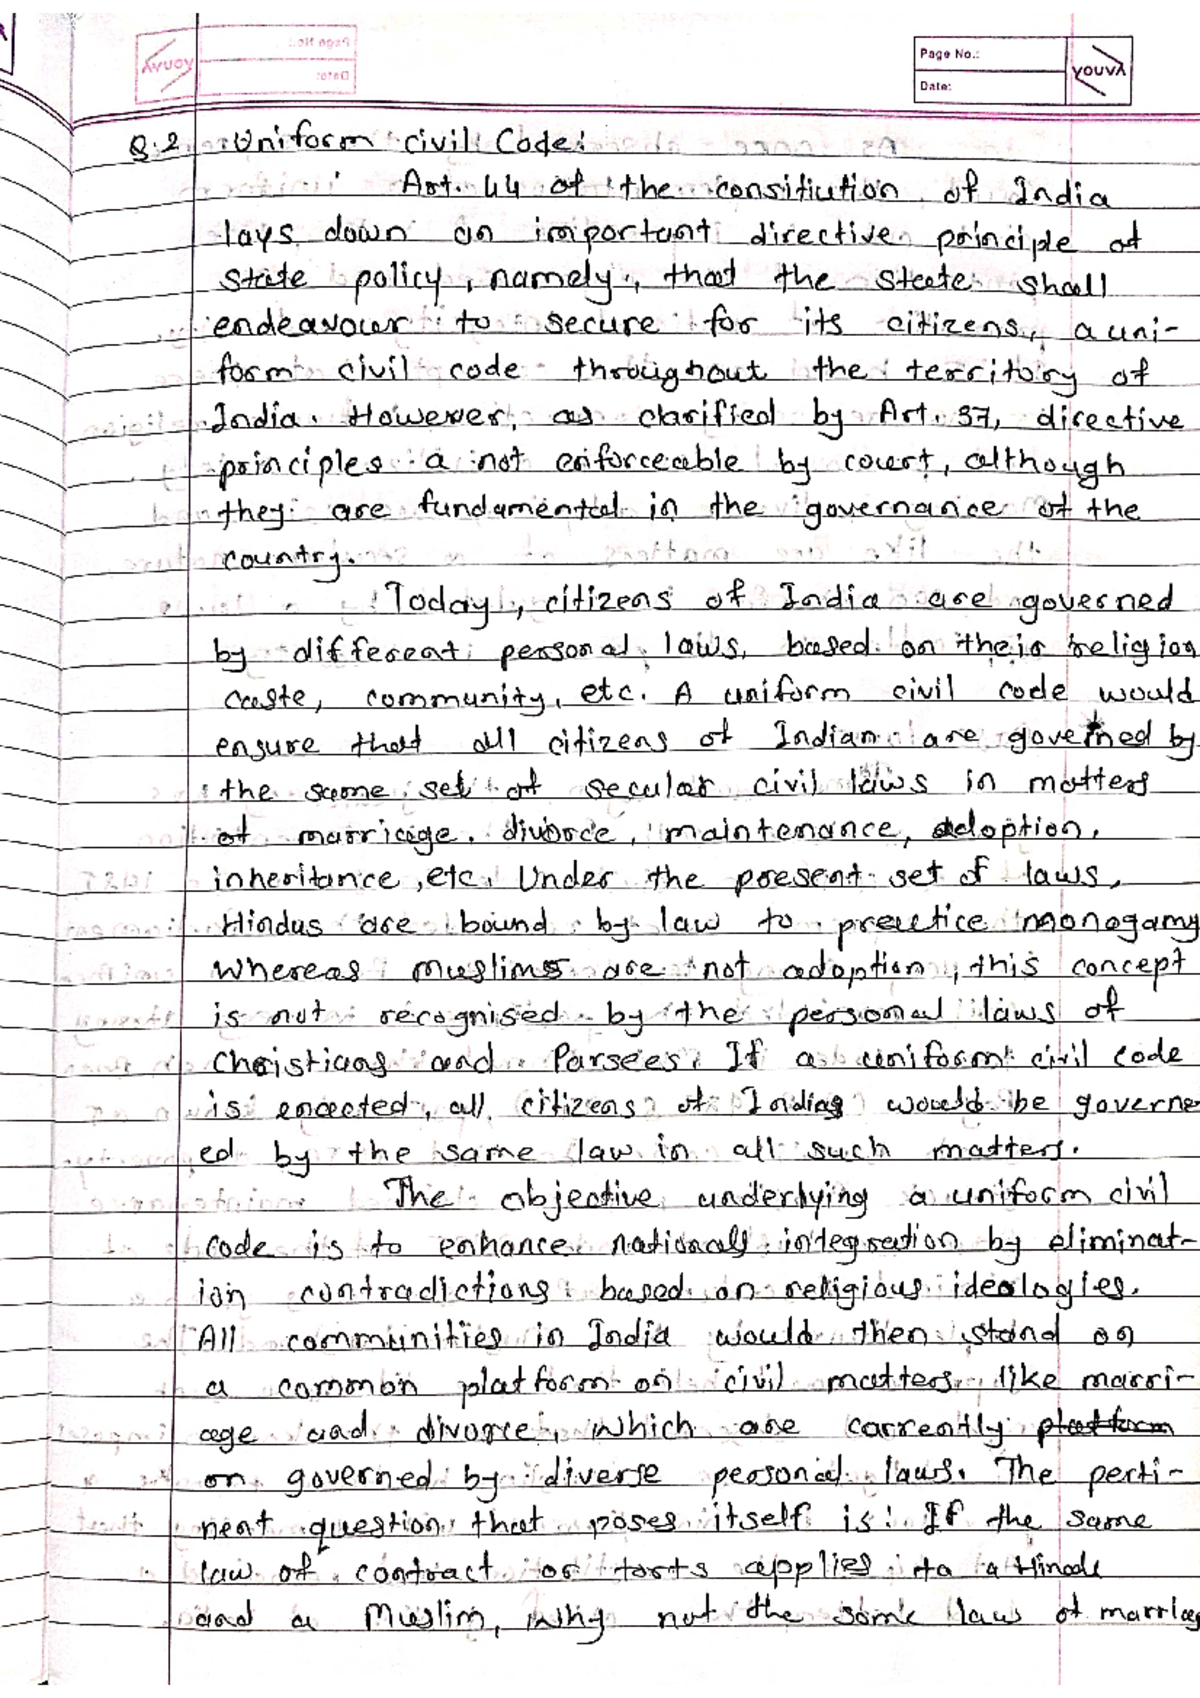 Page No.:
Date:
YOUVA
Q.2 Uniform civil Code:
Art. 44 of the consitiution of India
lays down an important directive principle of
State policy, namely, that the state shall
endeavour to secure for its citizens, a uni-
form civil code throughout the territory of
India. However, as clarified by Art. 37, directive
principles a not enforceable by court, although
they are fundamental in the governance of the
country.
Today, citizens of India are governed
by different personal laws, based on their religion
caste, community, etc. A uniform civil code would
ensure that all citizens of Indian are governed by
the same set of secular civil laws in matters
of marriage, divorce, maintenance, adoption,
inheritance, etc. Under the present set of laws,
Hindus are bound by law to practice monogamy
whereas muslims are not adoption, this concept
is not recognised by the personal laws of
Christians and Parsees. If a uniform civil code
is enacted, all citizens of Indias would be governe
ed by the same law in all such matters.
The objective underlying a uniform civil
code is to enhance national integration by eliminat-
ion contradictions based on religious ideologies.
All communities in India would then stand on
a common platform on civil matters like marri-
age and divorce, which are carrently platform
on governed by diverse personal laws. The perti-
nent question that poses itself is: If the same
law of contract or torts applies to a Hindu
and a Muslim, why not the same law of marriag